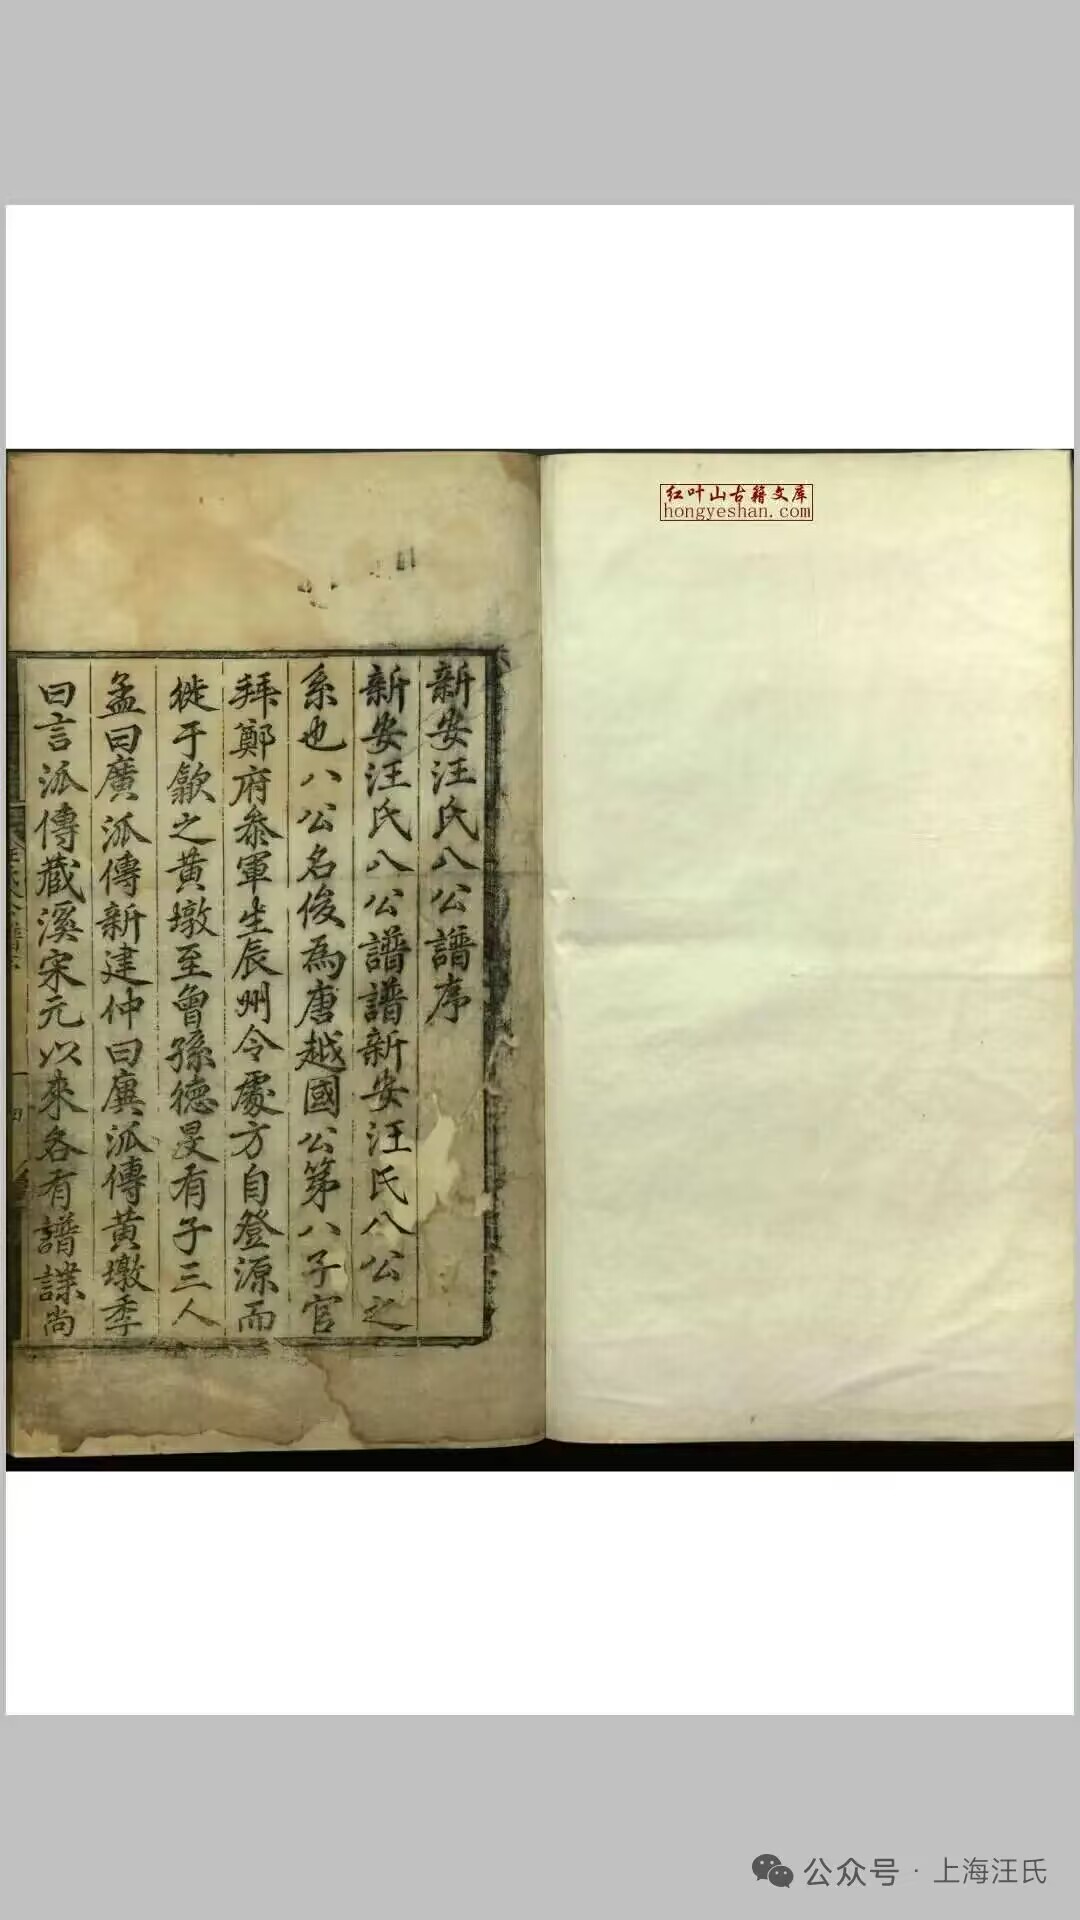 新安汪氏八公譜序
新安汪氏八公譜譜新安汪氏八公之
系也八公名俊為唐越國公第八子官
拜鄭府叅軍生辰州令處方自登源而
徙于歙之黃墩至曾孫德旻有子三人
孟曰廣派傳新建仲曰廙派傳黃墩季
曰言派傳藏溪宋元以來各有譜諜尚
红叶山古籍文库
hongyeshan.com
公众号·上海汪氏